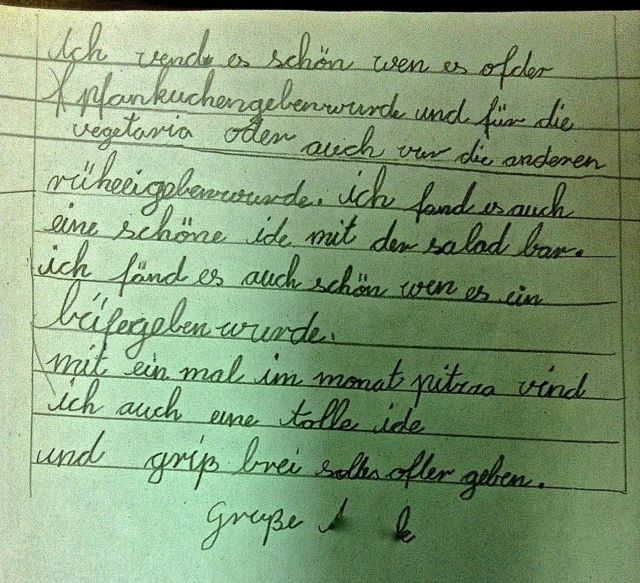 ich vend es schön wen es ofder
pfankuchengebenwurde und für die
vegetaria oder auch vur die anderen
rüheeigebenwurde. ich fand es auch
eine schöne ide mit der salad bar.
ich fänd es auch schön wen es ein
büfegebenwurde.
mit ein mal im monat pitzza vind
ich auch eine tolle ide
und griß brei solles ofter geben.
Gruße